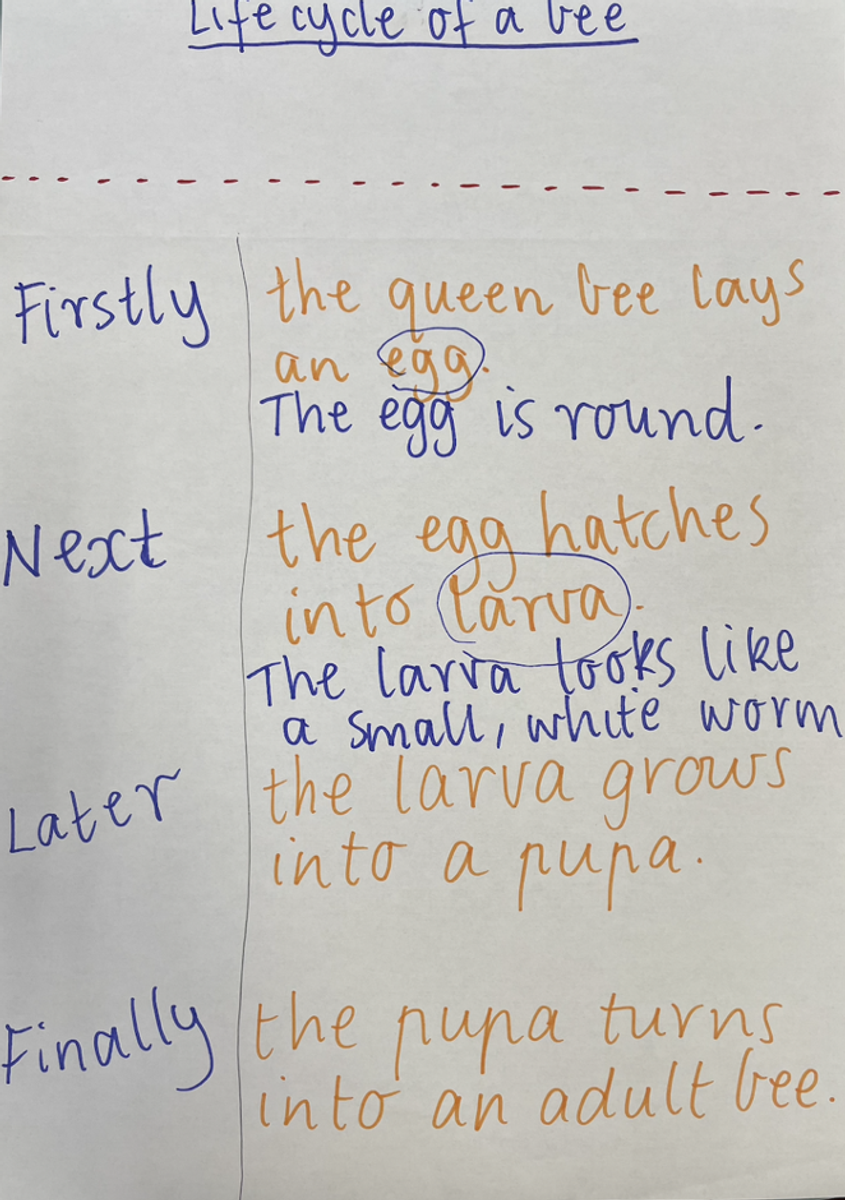 Life cycle of a bee
Firstly the queen bee lays
an egg.
The egg is round.
Next the egg hatches
into larva.
The larva looks like
a small, white worm
Later the larva grows
into a pupa.
Finally the pupa turns
into an adult bee.